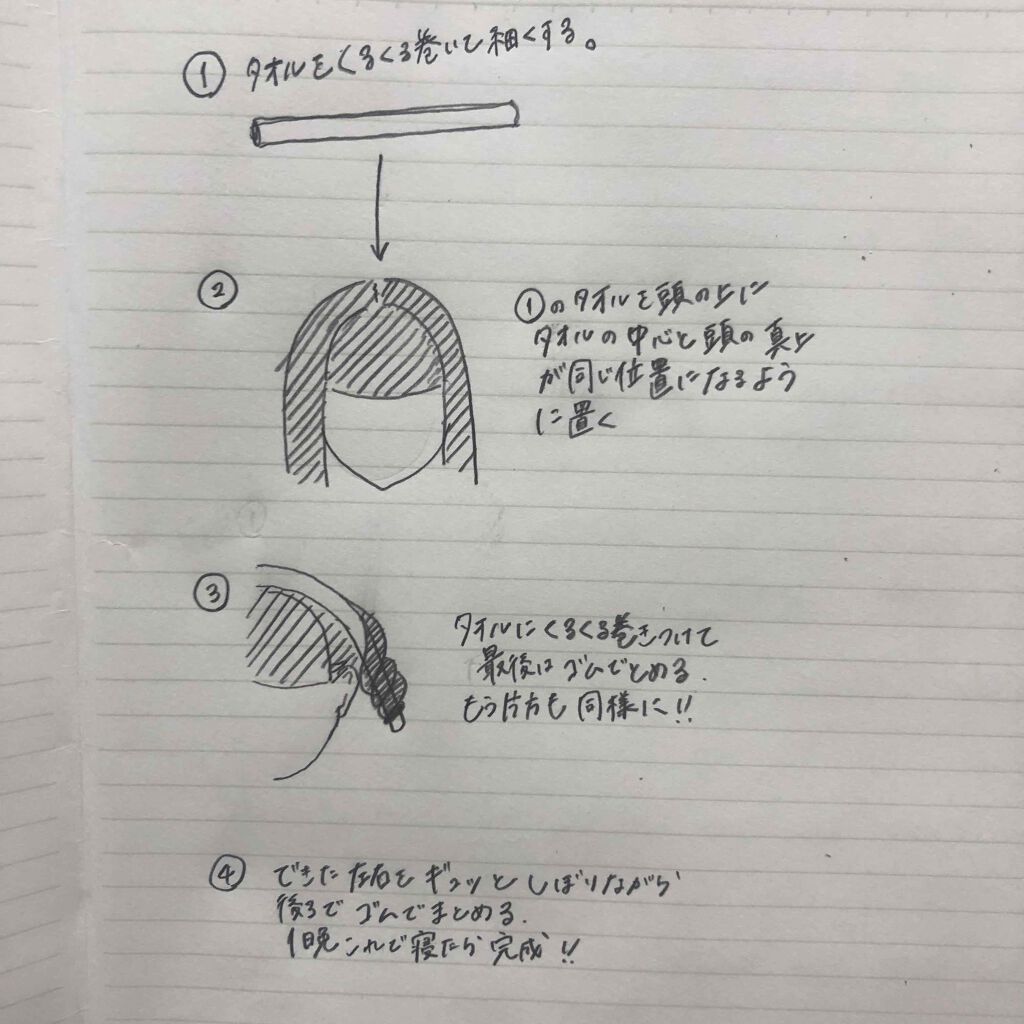 ① タオルをくるくる巻いて細くする。
②
①のタオルを頭の上に
タオルの中心と頭の真上
が同じ位置になるよう
に置く
③
タオルにくるくる巻きつけて
最後はゴムでとめる.
もう片方も同様に!!
④ できた左右をギュッとしばりながら
後ろでゴムでまとめる.
1晩これで寝たら完成!!